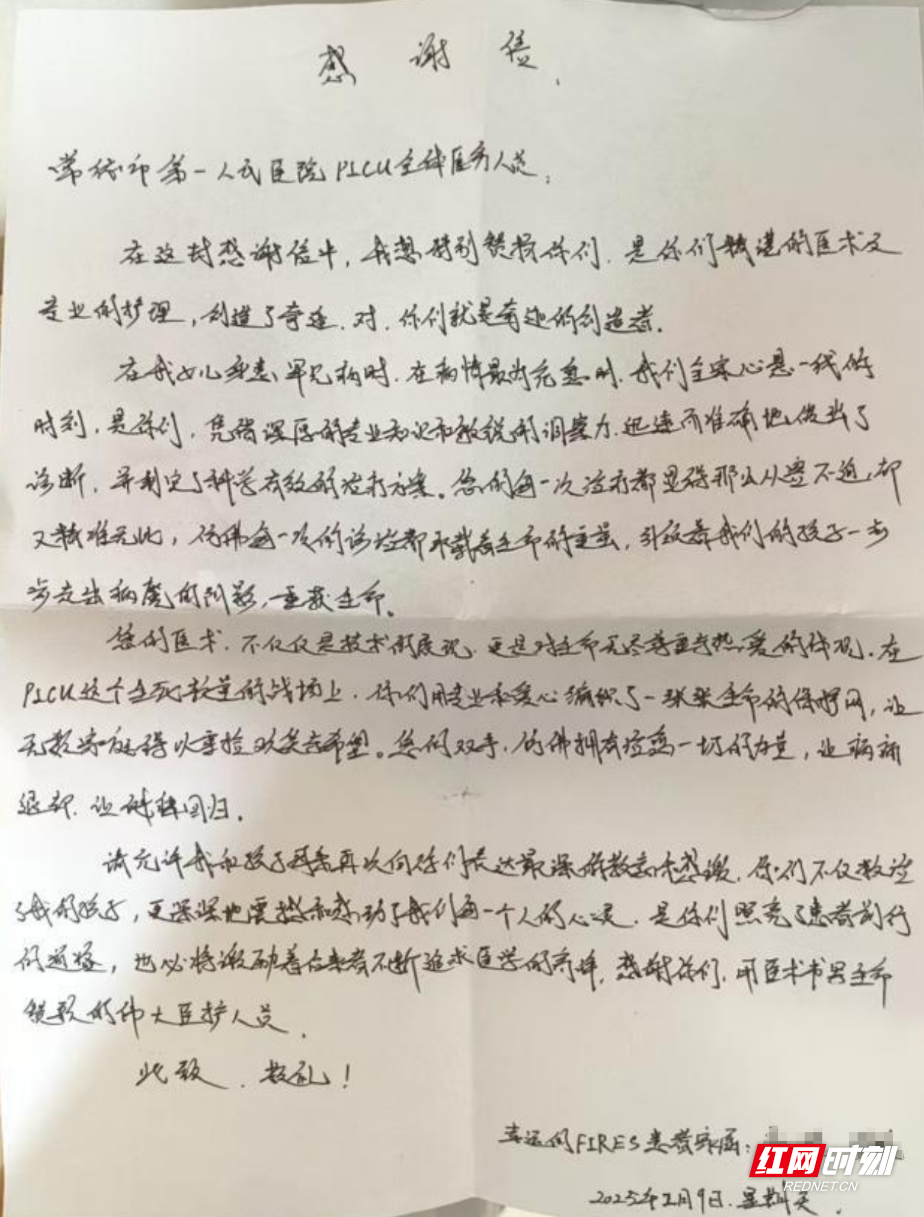 感谢信
常德市第一人民医院PICU全体医务人员:
在这封感谢信中,我想特别赞扬你们,是你们精湛的医术及
专业的护理,创造了奇迹.对.你们就是奇迹的创造者.
在我女儿身患罕见病时.在病情最为危急时.我们全家心悬一线的
时刻,是你们,凭借深厚的专业知识和敏锐的洞察力.迅速而准确地做出了
诊断,并制定了科学有效的治疗方案。您们每一次治疗都显得那么从容不迫,却
又精准无比,仿佛每一次的诊治都承载着生命的重量,引领着我们的孩子一步
步走出病魔的阴影,重获生命。
您的医术.不仅仅是技术的展现,更是对生命无尽尊重与热爱的体现.在
PICU这个生死较量的战场上,你们用专业和爱心编织了一张张生命的保护网,让
无数家庭得以重拾欢笑与希望。您们双手,仿佛拥有治愈一切的力量,让病痛
退却.让健康回归。
请允许我和孩子再次向你们表达最深的敬意和感激.你们不仅救治
了我的孩子,更深深地震撼和感动了我们每一个人的心灵.是你们照亮了患者前行
的道路,也必将激励着后来者不断追求医学的高峰.感谢你们.用医术书写生命
赞歌的伟大医护人员.
此致.敬礼!
幸运的FIRES患者家属:
2025年2月9日.星期天.
红网时刻
REDNET.CN